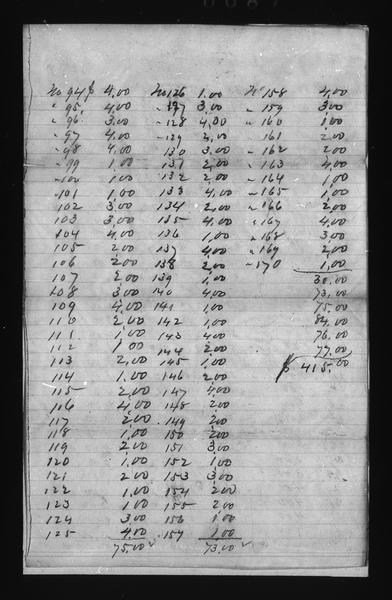 No 94 $ 4.00 No 126 1.00 No 158 4.00
" 95 4.00 " 127 3.00 " 159 3.00
" 96 3.00 " 128 4.00 " 160 1.00
" 97 4.00 " 129 2.00 " 161 2.00
" 98 4.00 130 3.00 " 162 2.00
" 99 1.00 131 2.00 " 163 4.00
" 100 1.00 132 2.00 " 164 1.00
101 1.00 133 4.00 " 165 1.00
102 3.00 134 2.00 " 166 2.00
103 3.00 135 4.00 " 167 4.00
104 4.00 136 1.00 " 168 3.00
105 2.00 137 4.00 " 169 2.00
106 2.00 138 2.00 " 170 1.00
107 2.00 139 1.00 30.00
108 3.00 140 4.00 73.00
109 4.00 141 1.00 75.00
110 2.00 142 1.00 84.00
111 1.00 143 4.00 76.00
112 1.00 144 2.00 77.00
113 2.00 145 1.00 $ 415.00
114 1.00 146 2.00
115 2.00 147 4.00
116 4.00 148 2.00
117 2.00 149 2.00
118 1.00 150 2.00
119 2.00 151 3.00
120 1.00 152 1.00
121 2.00 153 3.00
122 1.00 154 2.00
123 1.00 155 2.00
124 3.00 156 1.00
125 4.00 157 1.00
75.00 73.00